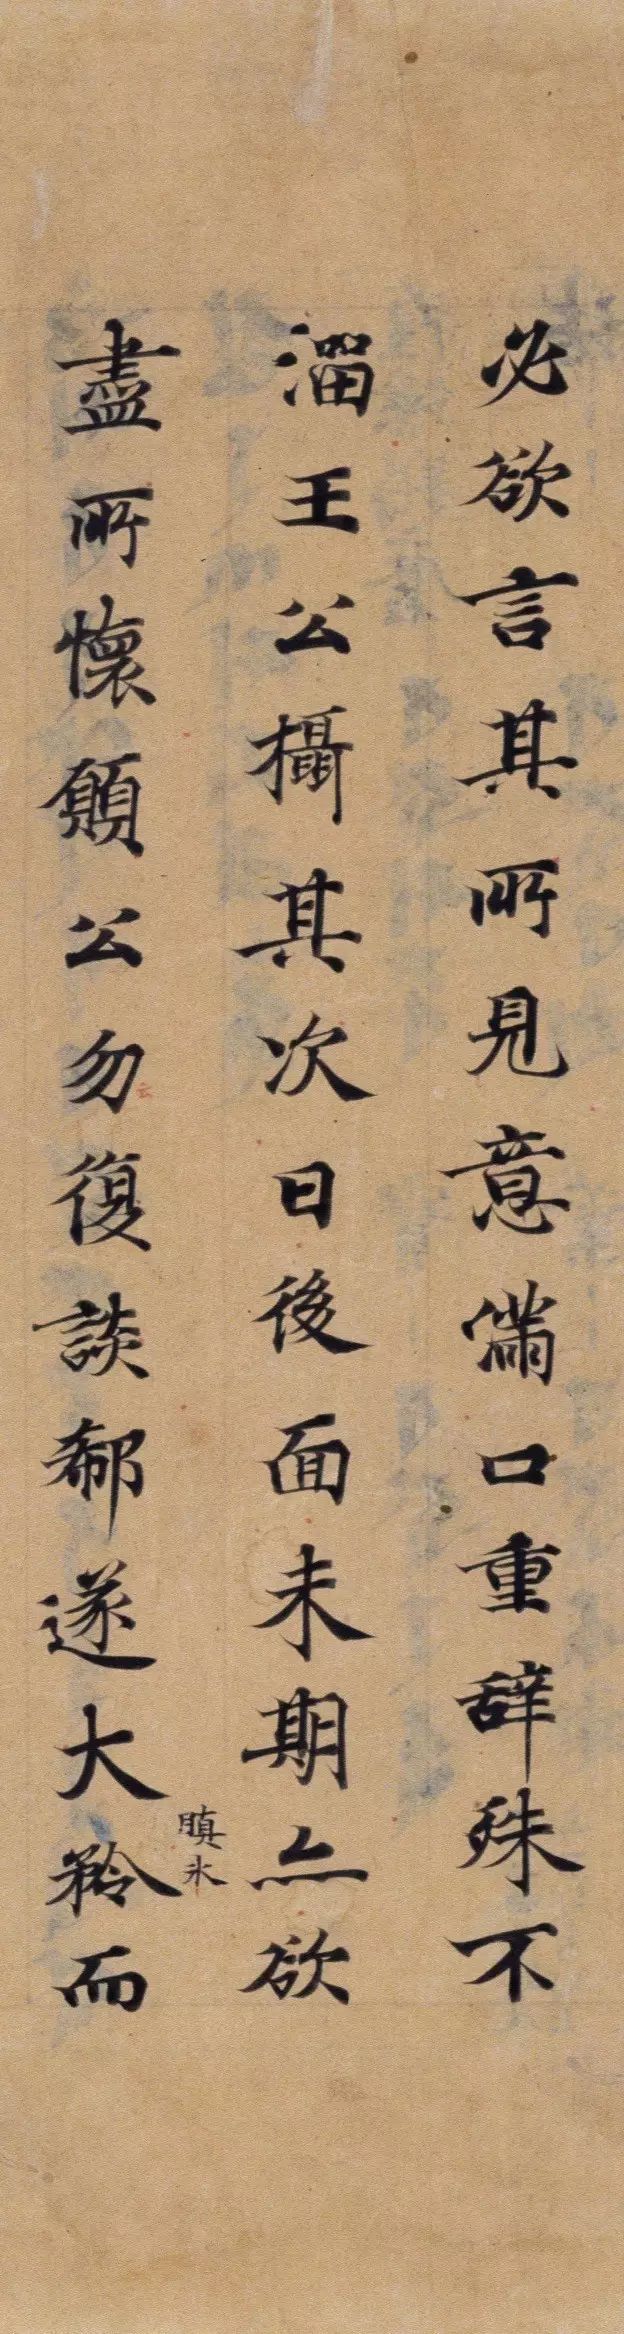 必欲言其所見意满口重辞殊不
溜王公攝其次日後面未期亦欲
盡所懷願公勿復談郗遂大矜而
瞋氷